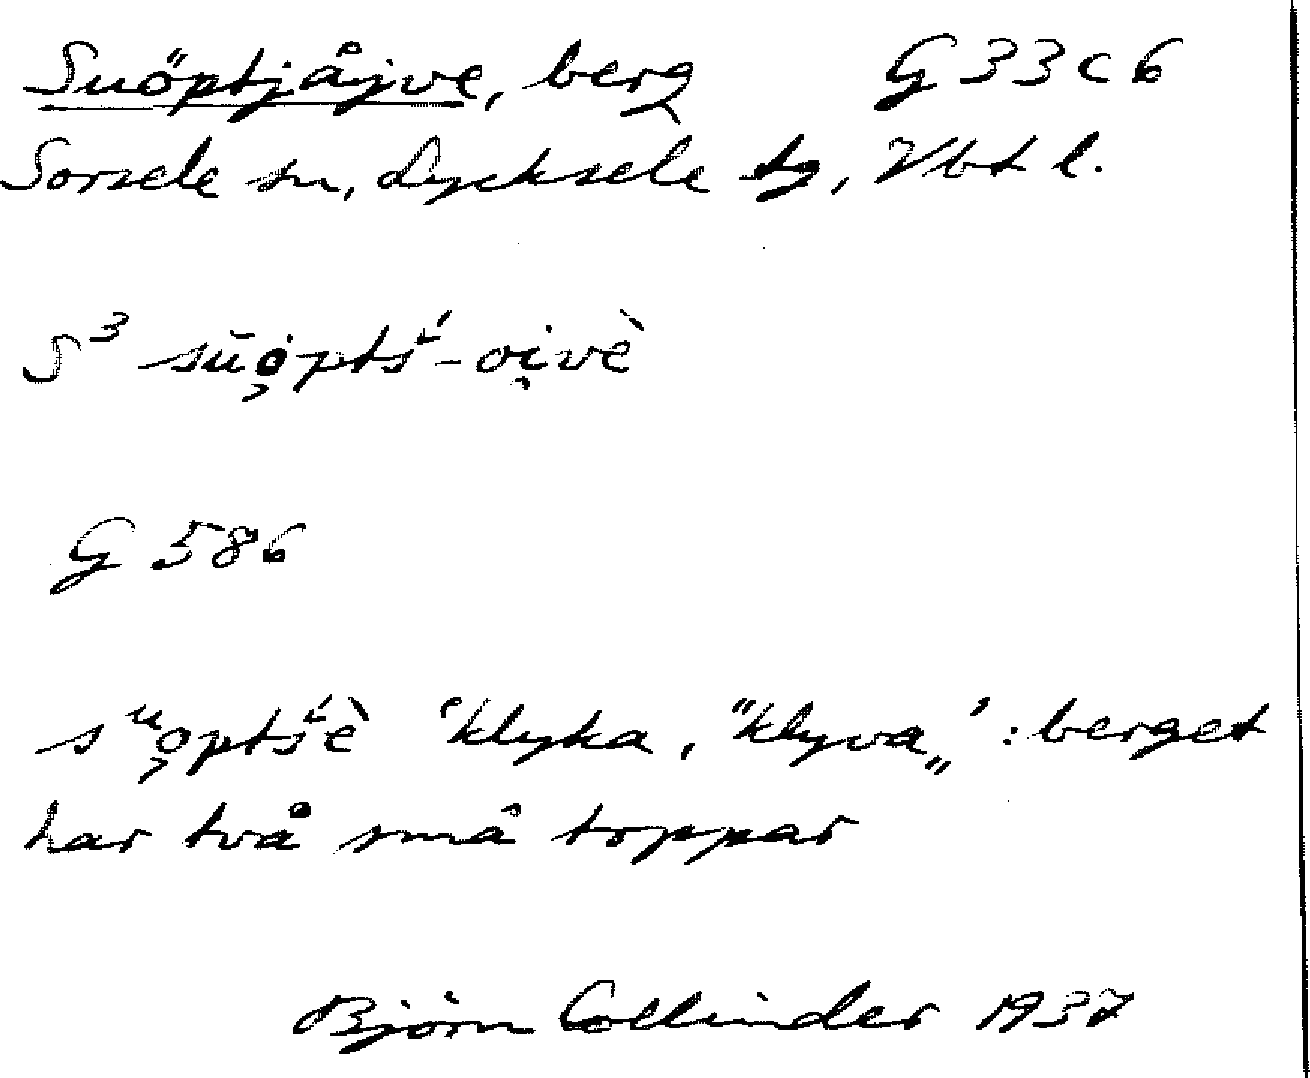 Suöptjåjve, berg G 33 c 6
Sorsele sn, Lycksele tg, Vbt l.
S³ sŭo̜ptś-oi̯vè
G 586
sᵘo̜ptśè 'klyka, "klyva„' : berget
har två små toppar
Björn Collinder 1937